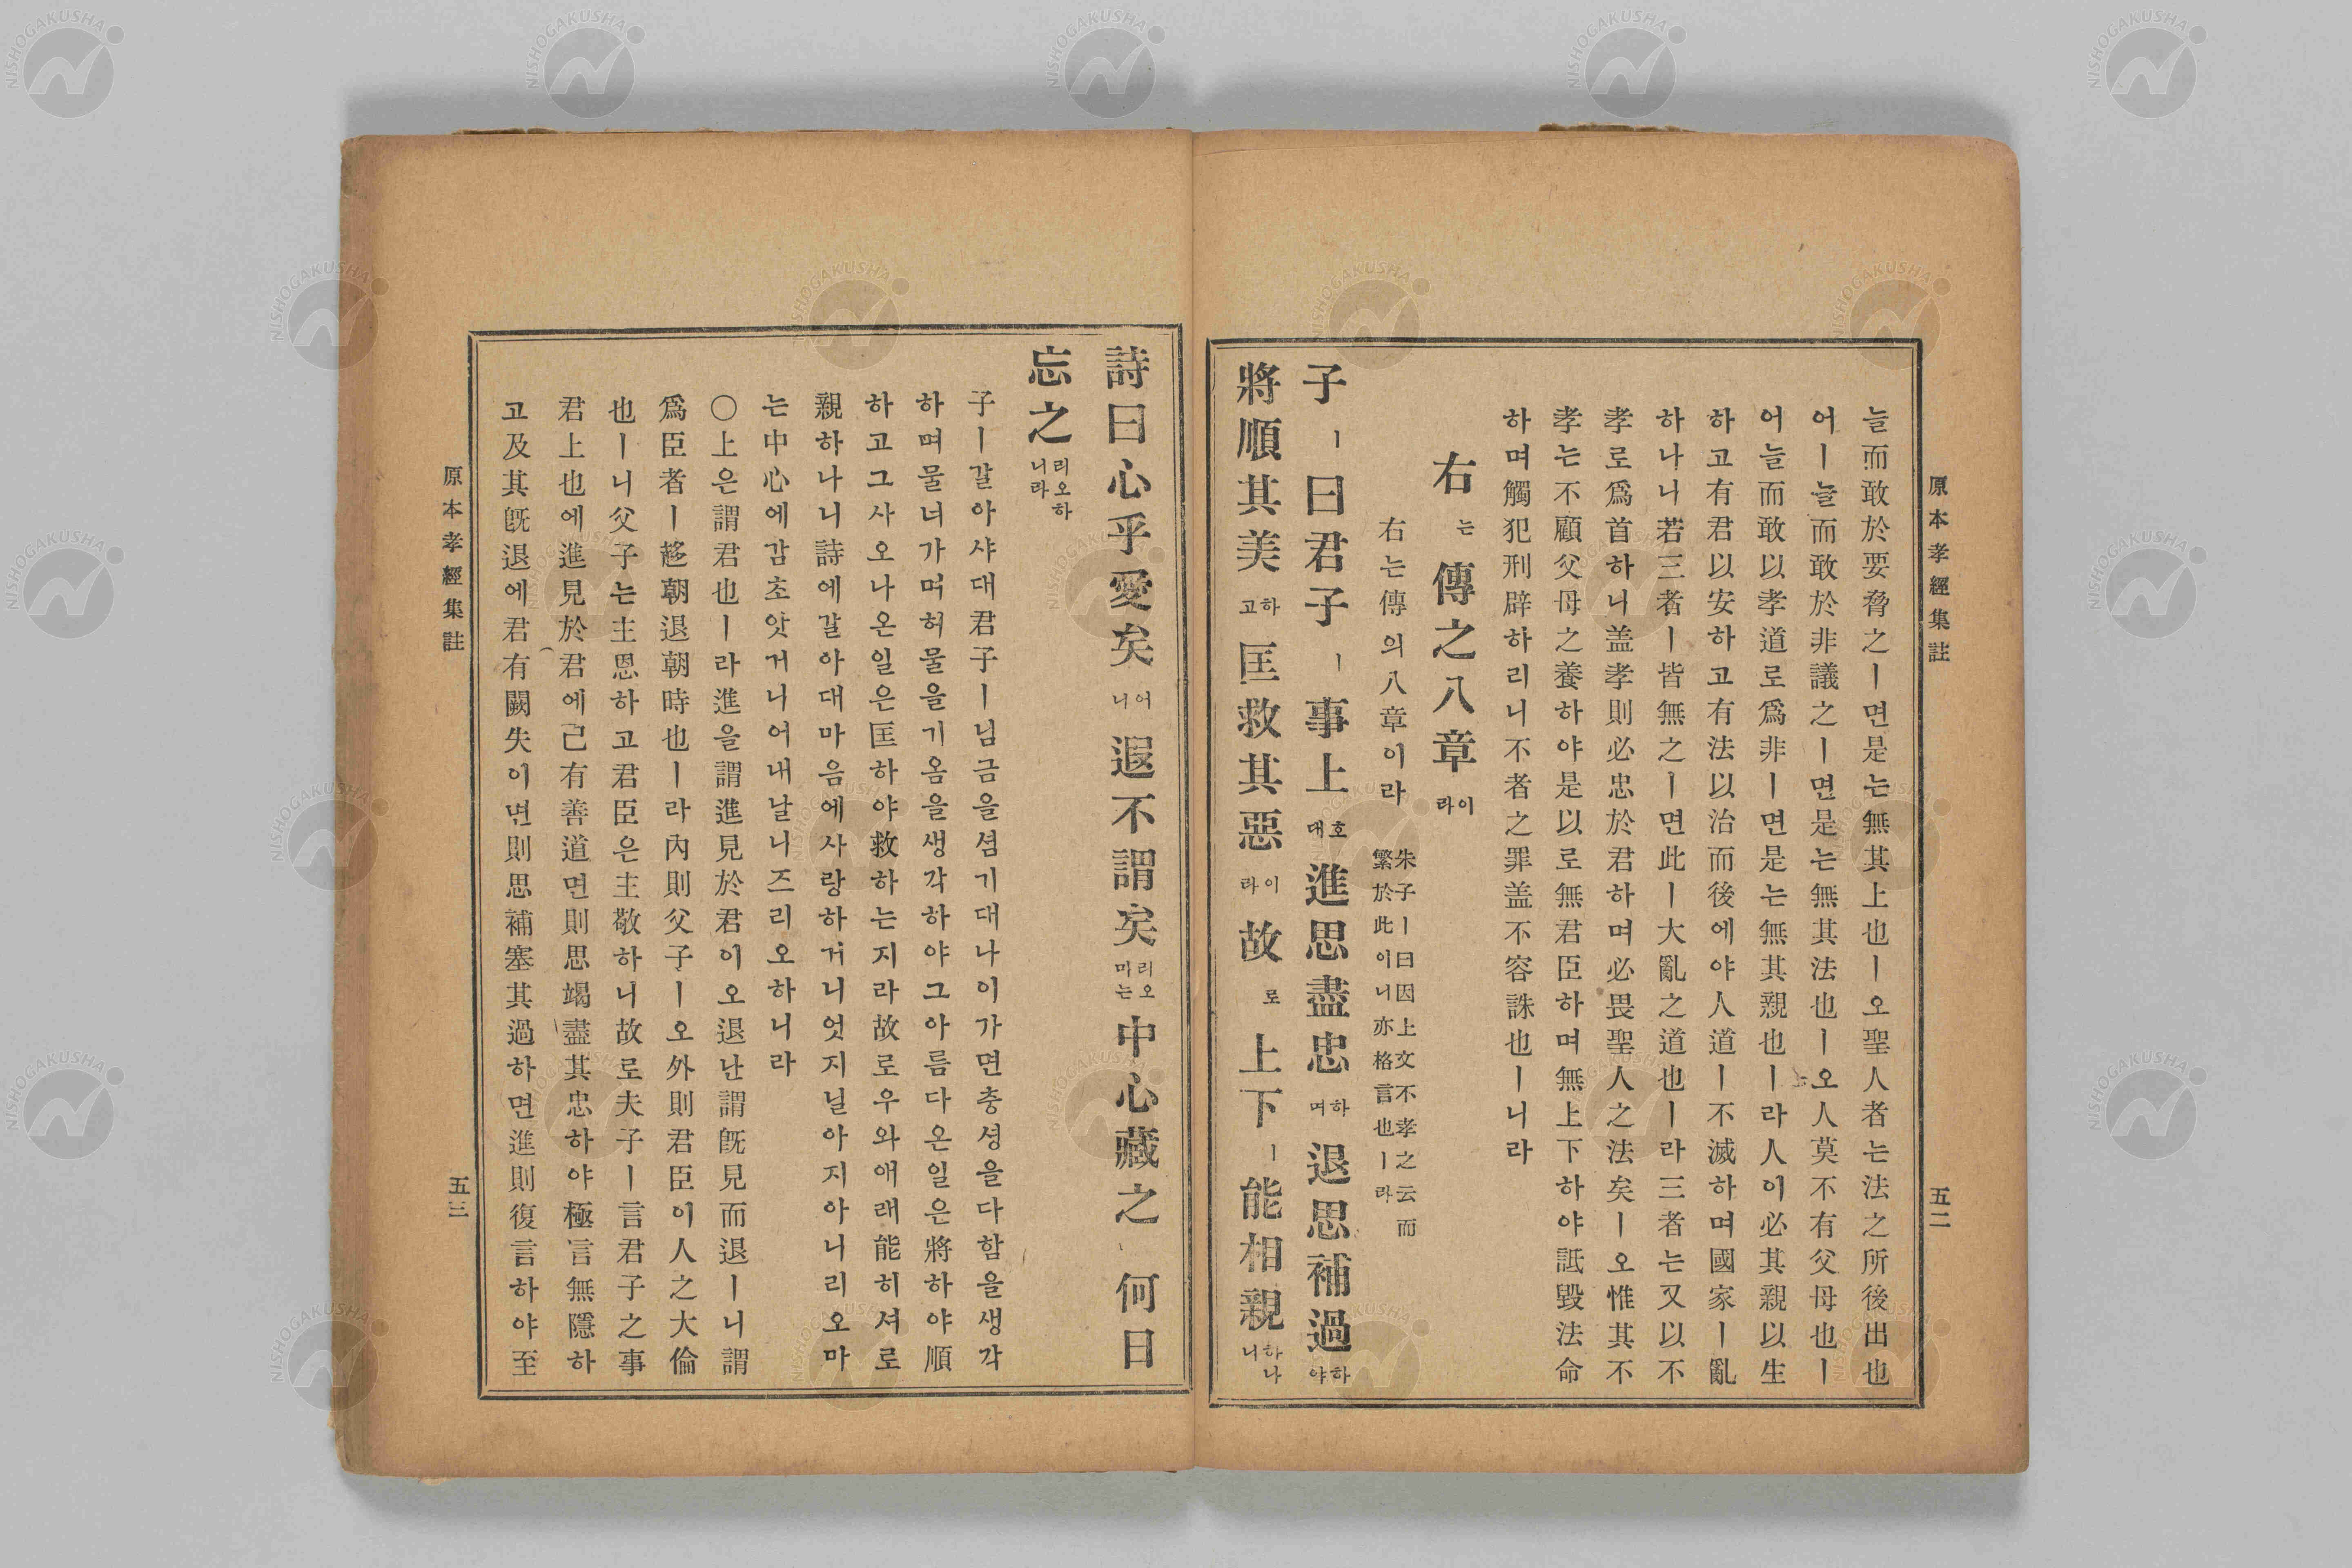 原本孝經集註
五二
늘而敢於要脅之ㅣ면是는無其上也ㅣ오聖人者는法之所後出也
어ㅣ늘而敢於非議之ㅣ면是는無其法也ㅣ오人莫不有父母也ㅣ
어늘而敢以孝道로爲非ㅣ면是는無其親也ㅣ라人이必其親以生
하고有君以安하고有法以治而後에야人道ㅣ不滅하며國家ㅣ亂
하나니若三者ㅣ皆無之ㅣ면此ㅣ大亂之道也ㅣ라三者는又以不
孝로爲首하니盖孝則必忠於君하며必畏聖人之法矣ㅣ오惟其不
孝는不顧父母之養하야是以로無君臣하며無上下하야詆毀法命
하며觸犯刑辟하리니不者之罪盖不容誅也ㅣ니라
右는傳之八章이라
右는傳의八章이라
朱子ㅣ曰因上文不孝之云而
繫於此이니亦格言也ㅣ라
子ㅣ曰君子ㅣ事上호대進思盡忠하며退思補過하야
將順其美하고匡救其惡이라故로上下ㅣ能相親하나니
詩曰心乎愛矣어니遐不謂矣리오마는中心藏之、何日
忘之리오하니라
子ㅣ갈아샤대君子ㅣ님금을셤기대나이가면충셩을다함을생각
하며물너가며허물을기옴을생각하야그아름다온일은將하야順
하고그사오나온일은匡하야救하는지라故로우와애래能히셔로
親하나니詩에갈아대마음에사랑하거니엇지닐아지아니리오마
는中心에감초앗거니어내날니즈리오하니라
〇上은謂君也ㅣ라進을謂進見於君이오退난謂旣見而退ㅣ니謂
爲臣者ㅣ趍朝退朝時也ㅣ라內則父子ㅣ오外則君臣이人之大倫
也ㅣ니父子는主恩하고君臣은主敬하니故로夫子ㅣ言君子之事
君上也에進見於君에己有善道면則思竭盡其忠하야極言無隱하
고及其旣退에君有闕失이면則思補塞其過하면進則復言하야至
原本孝經集註
五三
NISHOGAKUSHA